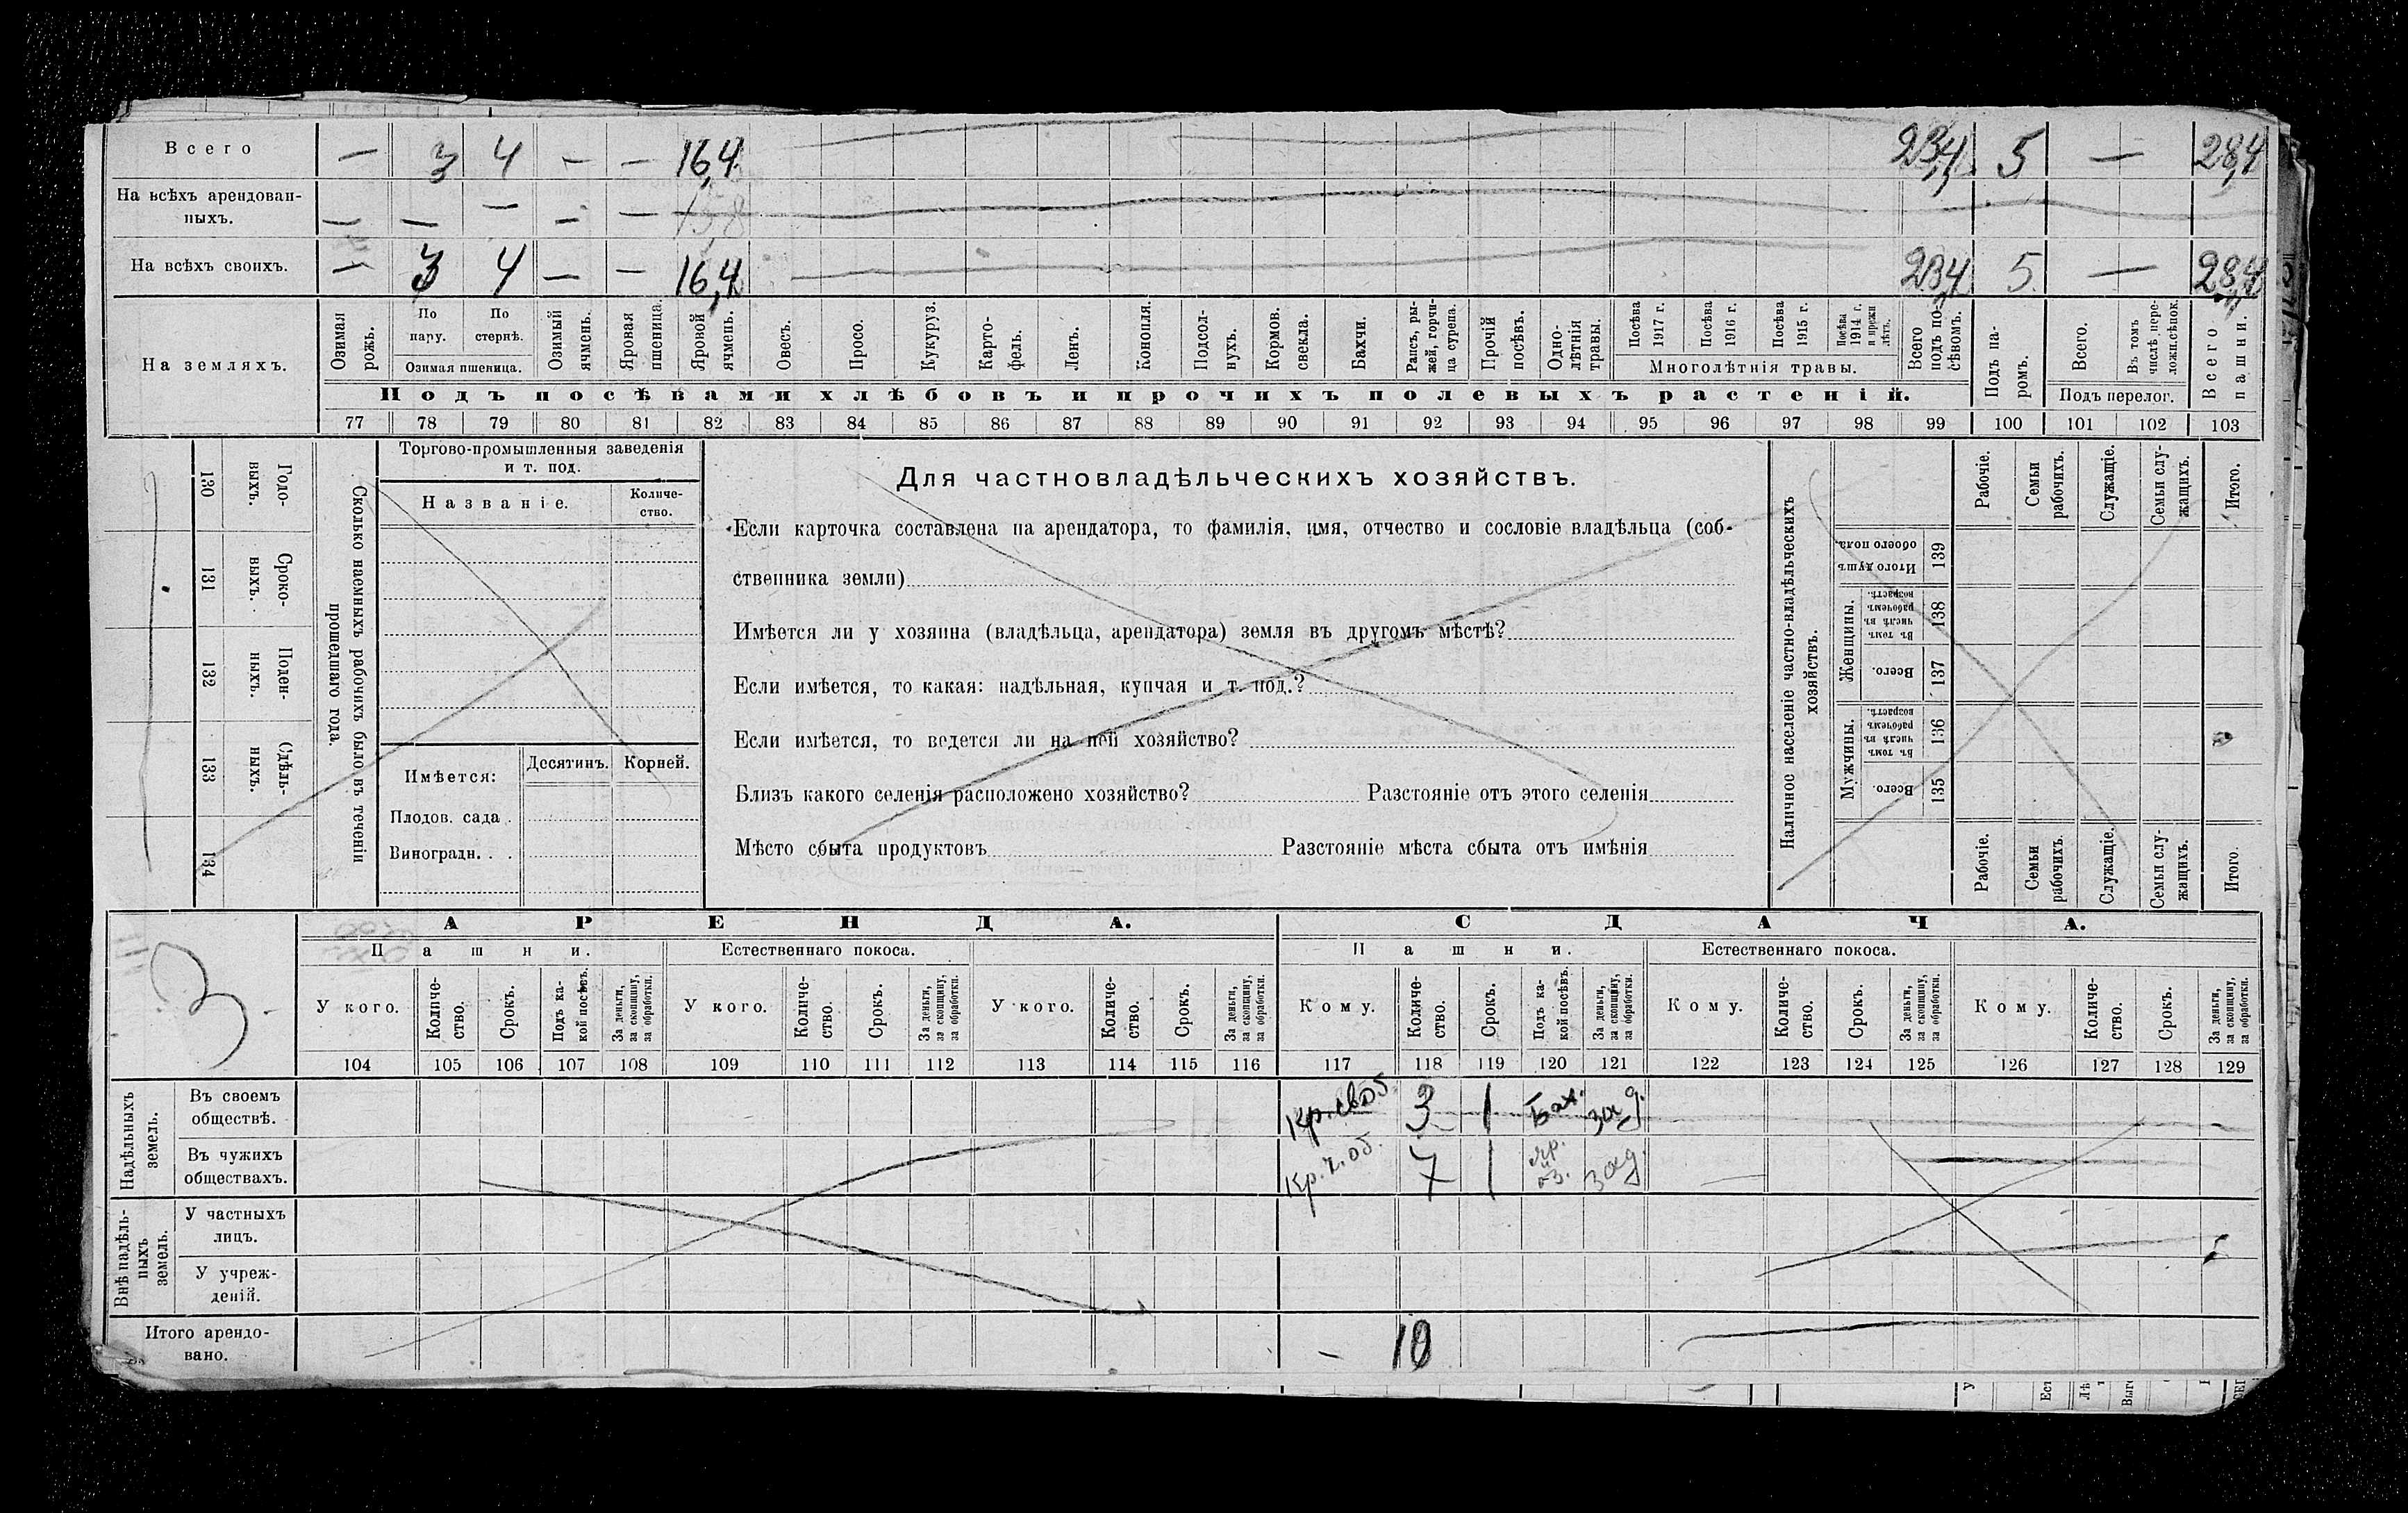 Всего — 3 4 — — 16,4 23,4 5 — 28,4
На всѣхъ арендован-
ныхъ. — — — — —
На всѣхъ своихъ. — 3 4 — — 16,4 23,4 5 — 28,4
На земляхъ.
Озимая рожь.
По пару.
По стернѣ.
Озимая пшеница.
Озимый ячмень.
Яровая пшеница.
Яровой ячмень.
Овесъ.
Просо.
Кукуруз.
Карто-
фель.
Ленъ.
Конопля.
Подсол-
нухъ.
Кормов. свекла.
Бахчи.
Рапсъ, ры-
жей, горчи-
ца сурепа.
Прочій посѣвъ.
Одно-
лѣтнія травы.
Посѣва 1917 г.
Посѣва 1916 г.
Посѣва 1915 г.
Посѣва 1914 г. и прежн лѣтъ.
Многолѣтнія травы.
Всего подъ по-
сѣвомъ.
Подъ па-
ромъ.
Всего.
Въ томъ числѣ пере-
ложн.сѣнок.
Подъ перелог.
Всего пашни.
Подъ посѣвами хлѣбовъ и прочихъ полевыхъ растеній.
77 78 79 80 81 82 83 84 85 86 87 88 89 90 91 92 93 94 95 96 97 98 99 100 101 102 103
130 Годо-
выхъ.
131 Сроко-
выхъ.
132 Поден-
ныхъ.
133 Сдѣль-
ныхъ.
134
Сколько наемныхъ рабочихъ было въ теченіи
прошедшаго года.
Торгово-промышленныя заведенія
и т. под.
Названіе.
Количе-
ство.
Имѣется:
Десятинъ. Корней.
Плодов. сада .
Виноградн. . .
Для частновладѣльческихъ хозяйствъ.
Если карточка составлена на арендатора, то фамилія, имя, отчество и сословіе владѣльца (соб-
ственника земли)
Имѣется ли у хозяина (владѣльца, арендатора) земля въ другомъ мѣстѣ?
Если имѣется, то какая: надѣльная, купчая и т. под.?
Если имѣется, то ведется ли на ней хозяйство?
Близъ какого селенія расположено хозяйство? Разстояніе отъ этого селенія
Мѣсто сбыта продуктовъ Разстояніе мѣста сбыта отъ имѣнія
Наличное населеніе частно-владѣльческихъ
хозяйствъ.
Рабочіе.
Семьи рабочихъ.
Служащіе.
Семьи слу-
жащихъ.
Итого.
Итого душъ обоего пола.
139
Женщины.
Въ томъ числѣ въ рабочемъ возрастѣ.
138
Всего.
137
Мужчины.
Въ томъ числѣ въ рабочемъ возрастѣ.
136
Всего.
135
Рабочіе.
Семьи рабочихъ.
Служащіе.
Семьи слу-
жащихъ.
Итого.
3
АРЕНДА. СДАЧА.
Пашни. Естественнаго покоса. Пашни. Естественнаго покоса.
У кого.
Количе-
ство.
Срокъ.
Подъ ка-
кой посѣвъ.
За деньги, за скопщину, за обработки.
У кого.
Количе-
ство.
Срокъ.
За деньги, за скопщину, за обработки.
У кого.
Количе-
ство.
Срокъ.
За деньги, за скопщину, за обработки.
Кому.
Количе-
ство.
Срокъ.
Подъ ка-
кой посѣвъ.
За деньги, за скопщину, за обработки.
Кому.
Количе-
ство.
Срокъ.
За деньги, за скопщину, за обработки.
Кому.
Количе-
ство.
Срокъ.
За деньги, за скопщину, за обработки.
104 105 106 107 108 109 110 111 112 113 114 115 116 117 118 119 120 121 122 123 124 125 126 127 128 129
Надѣльныхъ земель.
Въ своемъ
обществѣ.
Кр. своб 3 1 Бах. за д.
Въ чужихъ
обществахъ.
Кр. ч. об. 7 1 яр. оз. за д.
Внѣ надѣль-
ныхъ земель.
У частныхъ
лицъ.
У учреж-
деній.
Итого арендо-
вано.
— 10